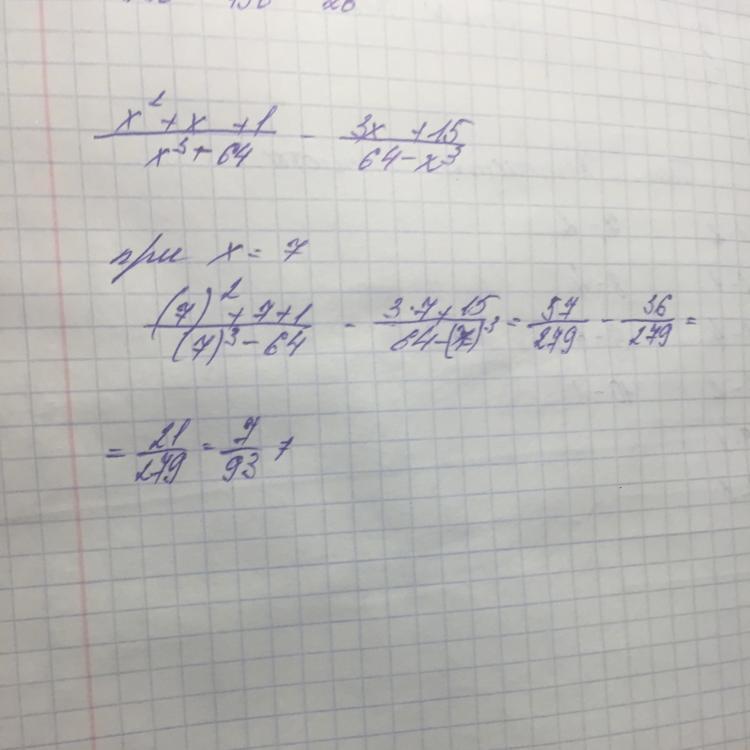 x² + x + 1 / x³ + 64 - 3x + 15 / 64 - x³
при x = 7
(7)² + 7 + 1 / (7)³ - 64 - 3·7 + 15 / 64 - (7)³ = 57/279 - 36/279 =
= 21/279 = 7/93